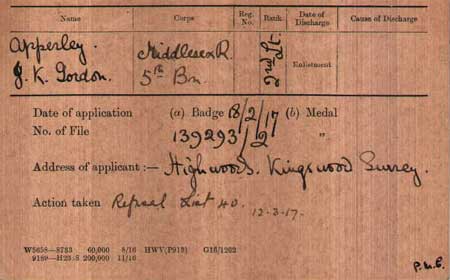 Name Corps Reg. No. Rank. Date of Discharge Cause of Discharge
Apperley. Middlesex R. 2nd Lt. Enlistment
J. K. Gordon. 5th Bn.
Date of application (a) Badge 18/2/17 (b) Medal
No. of File 139293/2 "
Address of applicant :— Highwoods. Kingswood Surrey.
Action taken Refusal List 40. 12-3-17.
W5658—8733 60,000 8/16 HWV(P913) G16/1262
9189—H23:S 200,000 11/16